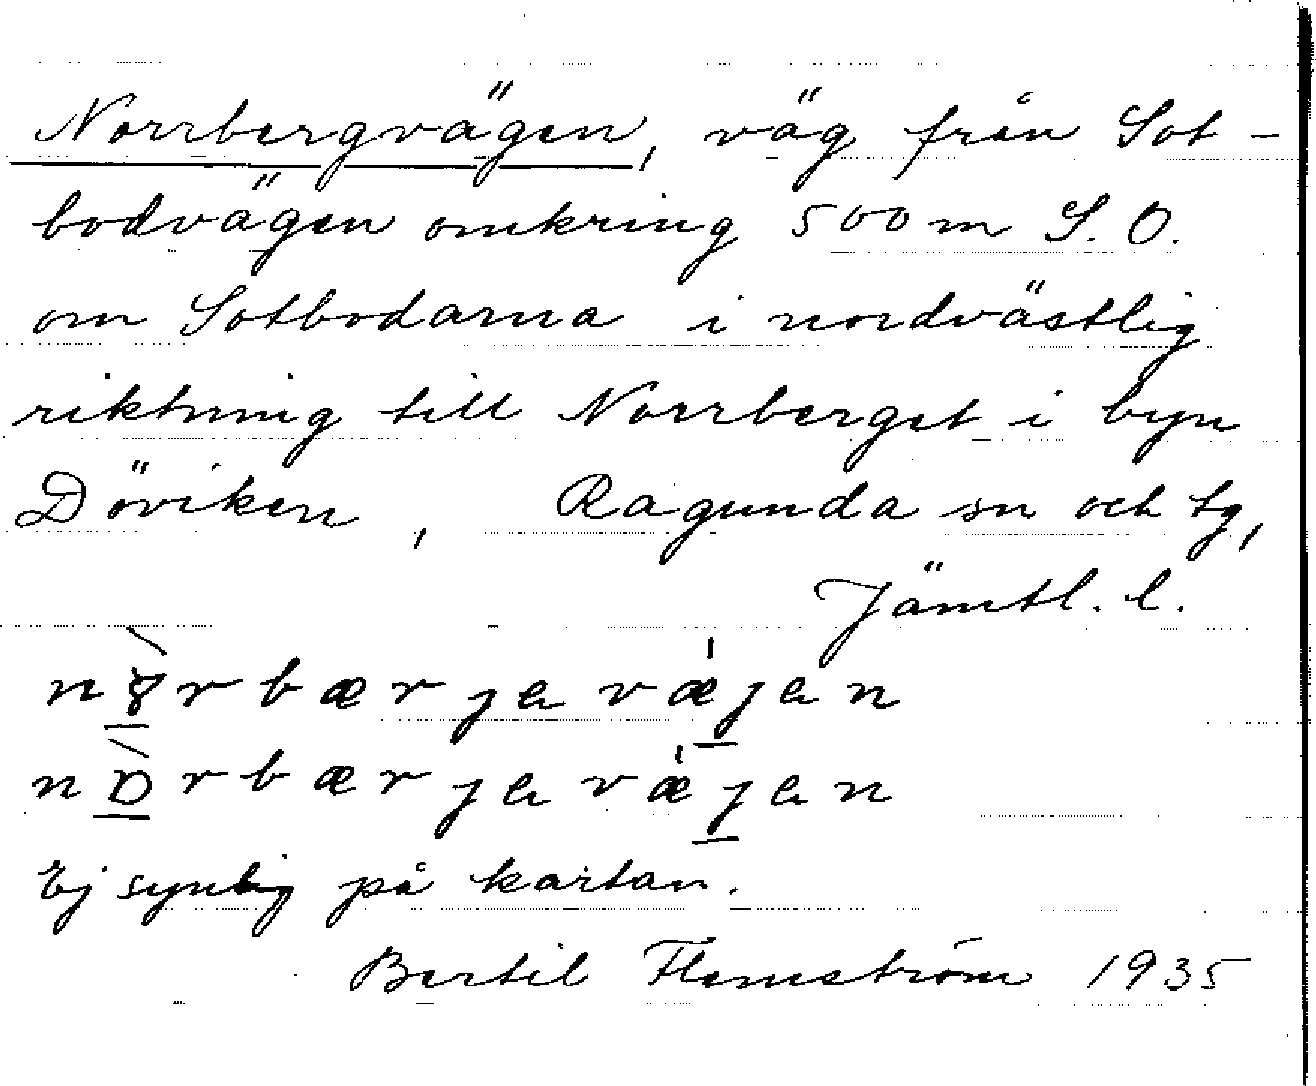 Norrbergvägen, väg från Sot-
bodvägen omkring 500 m S.O.
om Sotbodarna i nordvästlig
riktning till Norrberget i byn
Döviken, Ragunda sn och tg,
Jämtl. l.
bærjen væjen
bærjen væjen
Ej synlig på kartan.
Bertil Flemström 1935